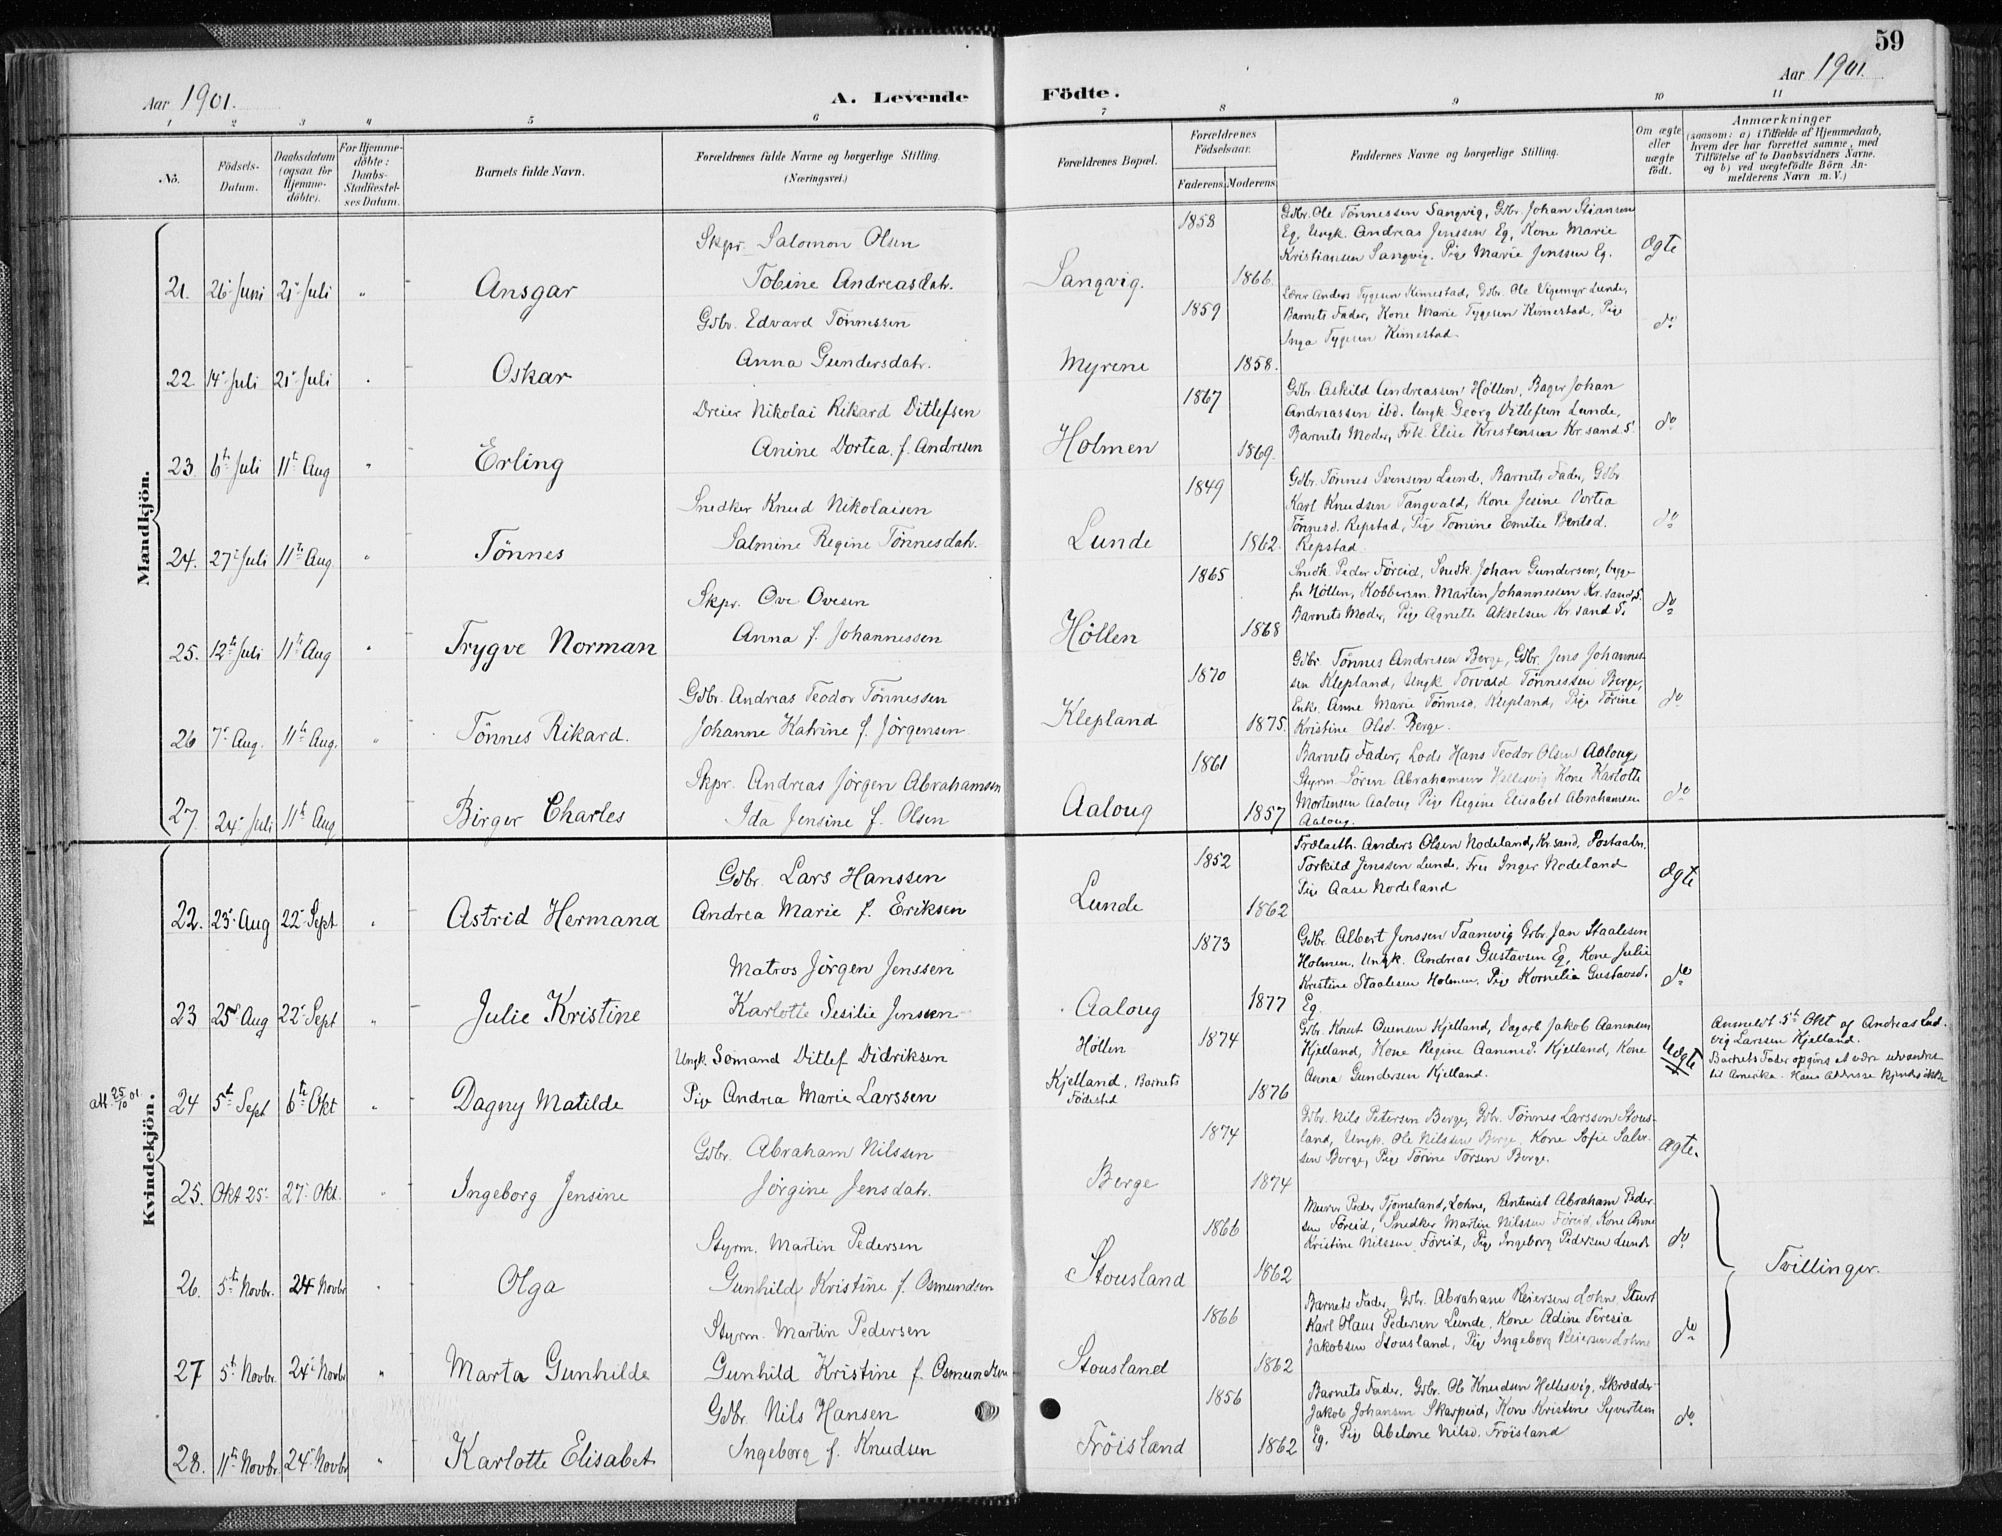 59
Aar 1901.
A. Levende Födte.
Aar 1901.
1 2 3 4 5 6 7 8 9 10 11
No.
Födsels-Datum.
Daabsdatum (ogsaa for Hjemme-döbte).
For Hjemme-döbte: Daabs-Stadfæstel-ses Datum.
Barnets fulde Navn.
Forældrenes fulde Navne og borgerlige Stilling. (Næringsvei.)
Forældrenes Bopæl.
Forældrenes Födselsaar.
Faderens. Moderens.
Faddernes Navne og borgerlige Stilling.
Om ægte eller uægte födt.
Anmærkninger (saasom: a) i Tilfælde af Hjemmedaab, hvem der har forrettet samme, med Tilföielse af to Daabsvidners Navne. og b) ved uægtefödte Börn An-melderens Navn m. V.)
Mandkjön.
21. 26 Juni 21 Juli " Ansgar
Skpr. Salomon Olsen
Tobine Andreasdatr.
Sangvig. 1858 1866.
Gdbr. Ole Tönnessen Sangvig, Gdbr. Johan Stiansen
Eg, Ungk. Andreas Jenssen Eg, Kone Marie
Kristiansen Sangvig. Pige Marie Jenssen Eg.
ægte
22. 14 Juli 21 Juli " Oskar
Gdbr. Edvard Tönnessen
Anna Gundersdatr.
Myrene 1859 1858.
Lærer Anders Tygesen Kimestad, Gdbr. Ole Vigemyr Lunde,
Barnets Fader, Kone Marie Tygesen Kimestad, Pige
Inga Tygesen Kimestad.
do
23 6te Juli 11te Aug " Erling
Dreier Nikolai Rikard Ditlefsen
Anine Dortea f. Andresen
Holmen 1867 1869.
Gdbr. Askild Andreassen Höllen, Bager Johan
Andreassen ibd. Ungk. Georg Ditlefsen Lunde,
Barnets Moder, Frk. Elise Kristensen Kr.sand S.
do
24. 27 Juli 11te Aug " Tönnes
Snedker Knud Nikolaisen
Salmine Regine Tönnesdatr.
Lunde 1849 1862.
Gdbr. Tönnes Svensen Lunde, Barnets Fader, Gdbr
Karl Knudsen Tangvald, Kone Jesine Dortea
Tönnesd. Repstad, Pige Tomine Emelie Bentsd.
Repstad.
do
25. 12te Juli 11te Aug " Trygve Norman
Skpr. Ove Ovesen
Anna f. Johannessen
Höllen 1865 1868
Snedk. Peder Föreid, Snedk. Johan Gundersen, begge
fra Höllen, Kobberm. Martin Johannessen Kr.sand S.
Barnets Moder, Pige Agnette Akselsen Kr.sand S.
do
26 7 Aug. 11te Aug. " Tönnes Rikard.
Gdbr. Andreas Teodor Tönnessen
Johanne Katrine f. Jörgensen
Klepland 1870 1875.
Gdbr. Tönnes Andresen Berge, Gdbr. Jens Johannes-
sen Klepland, Ungk. Torvald Tönnessen Berge,
Enke. Anne Marie Tönnesd. Klepland, Pige Törine
Kristine Olsd. Berge.
do
27. 24 Juli 11te Aug Birger Charles
Skpr. Andreas Jörgen Abrahamsen
Ida Jensine f. Olsen
Aaloug 1861 1857
Barnets Fader, Lods Hans Teodor Olsen Aaloug
Styrm. Sören Abrahamsen Hellesvig Kone Karlotte
Mortensen Aaloug Pige Regine Elisabet Abrahamsen
Aaloug.
do
Kvindekjön.
22. 23 Aug 22 Sept " Astrid Hermana
Gdbr. Lars Hanssen
Andrea Marie f. Eriksen
Lunde 1852 1862
Anders Olsen Nodeland, Kr.sand, Postaabn.
Torkild Jenssen Lunde, Fru Inger Nodeland
Pige Aase Nodeland
ægte
23 25 Aug 22 Sept " Julie Kristine
Matros Jörgen Jenssen
Karlotte Sesilie Jenssen
Aaloug 1873 1877
Gdbr. Albert Jenssen Taanevig Gdbr Jan Staalesen
Holmen, Ungk. Andreas Gustavsen Eg, Kone Julie
Kristine Staalesen Holmen, Pige Kornelia Gustavsd.
Eg.
do
att 25/10 01. 24 5te Sept 6te Okt " Dagny Matilde
Ungk. Somand Ditlef Didriksen
Pige Andrea Marie Larssen
Höllen
Kjelland, Barnets
Födested
1874 1876
Gdbr. Knut Evensen Kjelland, Dagarb Jakob Aanensen
Kjelland, Kone Regine Aanensd. Kjelland, Kone
Anna Gundersen Kjelland.
Uægte
Anmeldt 5te Okt af Andreas Lud-
vig Larssen Kjelland.
Barnets Fader opgives at være udvandret
til Amerika. Hans Addresse kjendes ikke
25. Okt 25 27 Okt. " Ingeborg Jensine
Gdbr. Abraham Nilssen
Jörgine Jensdatr.
Berge 1874 1874
Gdbr. Nils Petersen Berge, Gdbr. Tönnes Larsson Stous-
land, Ungk. Ole Nilssen Berge, Kone Sofie Salve-
sen Berge, Pige Törine Torsen Berge.
ægte.
26. 5te Novbr. 24 Novbr " Olga
Styrm. Martin Pedersen
Gunhild Kristine f. Osmundsen
Stousland 1866 1862
Murer Peder Tjomsland, Lohne, Rentenist Abraham Peder-
sen Föreid, Snedker Martin Nilssen Föreid, Kone Anne
Kristine Nilssen Föreid, Pige Ingeborg Pedersen Lunde
do
Tvillinger.
27 5te Novbr. 24 Novbr " Marta Gunhilde
Styrm. Martin Pedersen
Gunhild Kristine f Osmundsen
Stousland 1866 1862
Barnets Fader, Gdbr. Abraham Reiersen Lohne Stuert
Karl Hans Pedersen Lunde, Kone Adine Teresia
Jakobsen Stousland, Pige Ingeborg Reiersen Lohne
do
28. 11te Novbr. 24 Novbr " Karlotte Elisabet
Gdbr. Nils Hansen
Ingeborg f. Knudsen
Fröisland 1856 1862
Barnets Fader, Gdbr. Ole Knudsen Hellesvig, Skrædder
Jakob Johansen Skarpeid, Kone Kristine Syvertsen
Eg, Pige Abelone Nilsd. Fröisland
do